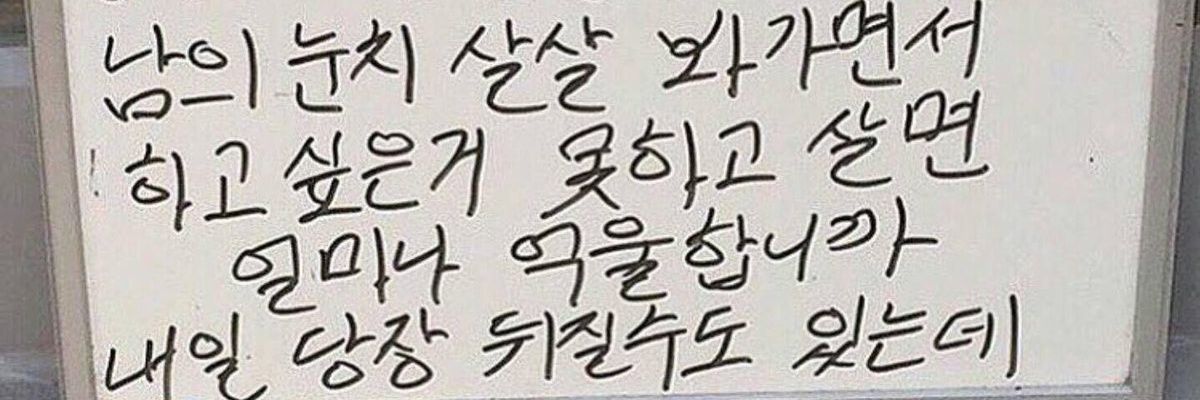 남의 눈치 살살 봐가면서
하고 싶은거 못하고 살면
얼마나 억울합니까
내일 당장 뒤질수도 있는데